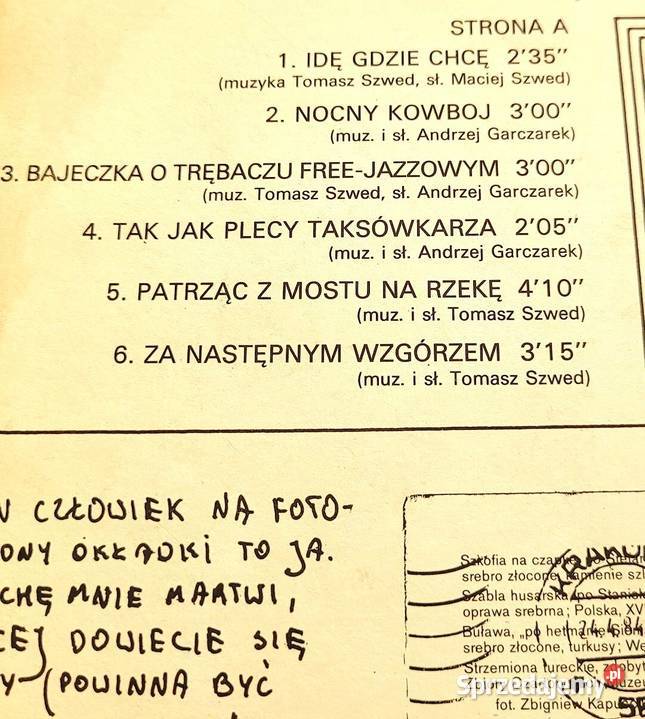 STRONA A
1. IDĘ GDZIE CHCĘ 2'35"
(muzyka Tomasz Szwed, sł. Maciej Szwed)
2. NOCNY KOWBOJ 3'00"
(muz. i sł. Andrzej Garczarek)
3. BAJECZKA O TRĘBACZU FREE-JAZZOWYM 3'00"
(muz. Tomasz Szwed, sł. Andrzej Garczarek)
4. TAK JAK PLECY TAKSÓWKARZA 2'05"
(muz. i sł. Andrzej Garczarek)
5. PATRZĄC Z MOSTU NA RZEKĘ 4'10"
(muz. i sł. Tomasz Szwed)
6. ZA NASTĘPNYM WZGÓRZEM 3'15"
(muz. i sł. Tomasz Szwed)
N CZŁOWIEK NA FOTO-
ONY OKŁADKI TO JA.
CHĘ MNIE MARTWI,
CEJ DOWIECIE SIĘ
Y (POWINNA BYĆ
Szkofia na czapkę, po
srebro złocone, kamienie szl
Szabla husarska, po Stanisł
oprawa srebrna; Polska, XV
Buława, „po hetmanie
srebro złocone, turkusy; Wę
Strzemiona tureckie,
fot. Zbigniew Kapuś
KRAKÓ
Sprzedajemy.pl